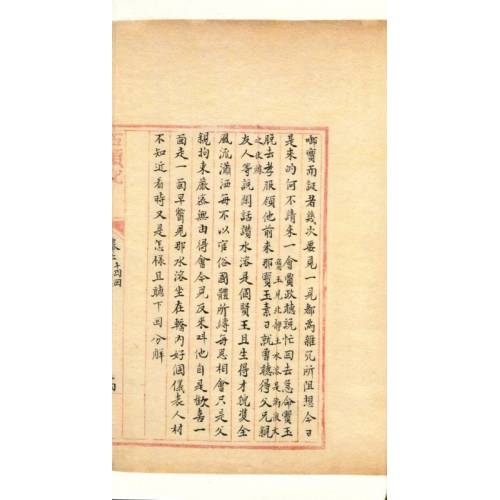 啣寶而誕者幾次要見一見都為雜冗所阻想今日
是來的何不請來一會賈政聽說忙回去急命寶玉
脫去孝服領他前來那寶玉素日就曾聽得父兄親
友人等說閒話讚水溶是個賢王且生得才貌雙全
風流瀟洒每不以官俗國體所縛每思相會只是父
親拘束嚴密無由得會今見反來叫他自是歡喜一
面走一面早瞥見那水溶坐在轎內好個儀表人材
不知近看時又是怎樣且聽下回分解